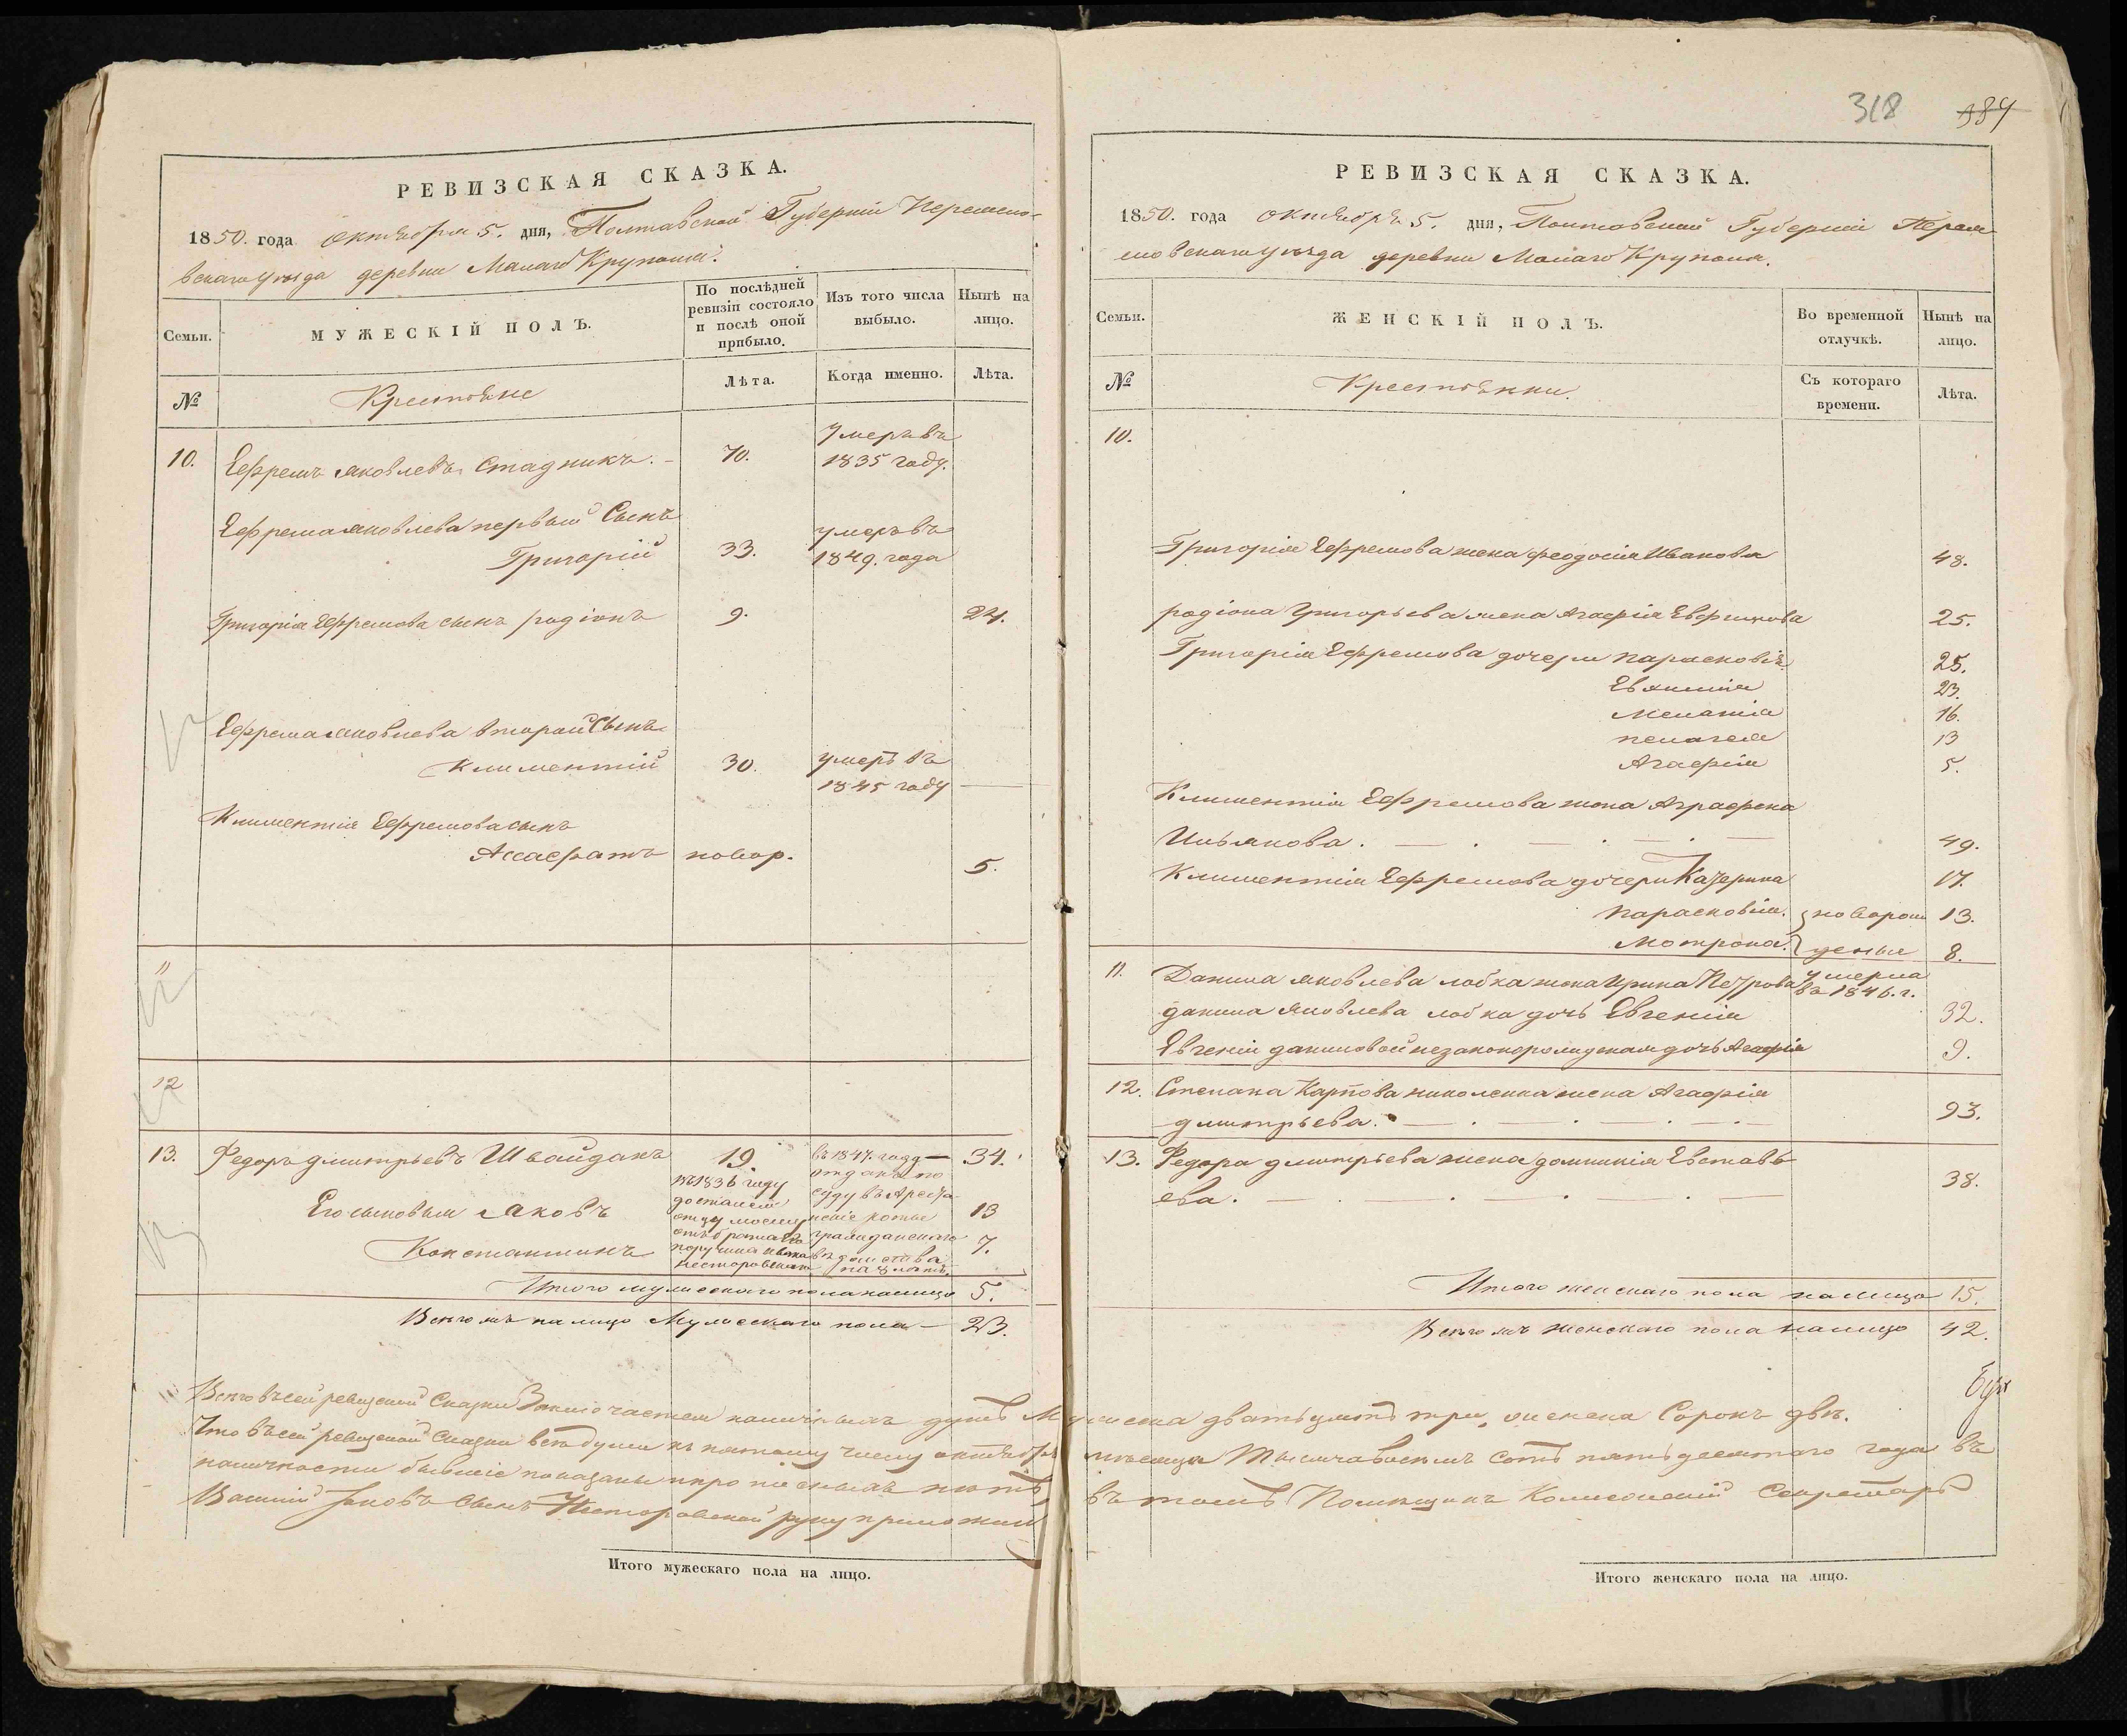 РЕВИЗСКАЯ СКАЗКА.
1850. года октября 5. дня, Полтавской Губерніи Переясло-
вскаго Уезда деревни Малаго Круполя.
Семьи.
МУЖЕСКІЙ ПОЛЪ.
По послѣдней
ревизіи состояло
и послѣ оной
прибыло.
Изъ того числа
выбыло.
Нынѣ на
лицо.
№
Крестьяне
Лѣта.
Когда именно.
Лѣта.
10. Ефремъ яковлевъ Стадникъ. 70. Умеръ въ
1835 году.
Ефрема яковлева первый Сынъ
Григорій 33. умеръ въ
1849. года
Григорія Ефремова сынъ родіонъ 9. 24.
Ефрема яковлева второй Сынъ
Климентій 30. умеръ въ
1845 году
Климентія Ефремова сынъ
Ассафатъ новор. 5.
11
12
13. Федоръ дмитрьевъ Швайданъ 19. въ 1847. году 34.
въ 1836 году
отданъ по
достался суду въ Ареста
Его сыновья яковъ отцу моему нскіе роты 13
отъ брата гражданскаго
Константинъ поручика ведомства 7.
Несторовскаго на 8 летъ.
Итого мужескаго пола налицо 5.
Всего же налицо Мужескаго пола 23.
318 384
РЕВИЗСКАЯ СКАЗКА.
1850. года октября 5. дня, Полтавской Губерніи Перея-
словскаго Уезда деревни Малаго Круполя.
Семьи.
ЖЕНСКІЙ ПОЛЪ.
Во временной
отлучкѣ.
Нынѣ на
лицо.
№
Крестьянки.
Съ котораго
времени.
Лѣта.
10.
Григорія Ефремова жена феодосія Иванова 48.
родіона Григорьева жена Агафія Евфимова 25.
Григорія Ефремова дочери парасковія 25.
Евхимія 23.
Меланія 16.
пелагея 13
Агафія 5.
Климентія Ефремова жена Аграфена
Ильякова. 49.
Климентія Ефремова дочери Катерина 17.
парасковія. новорож 13.
Мотрона. деныя 8.
11. Данила яковлева лобка жона Ирина Петрова умерла
въ 1846. г.
данила Яковлева лобка дочь Евгенія 32.
Евгеніи даниловой незаконорожденая дочь Агафія 9.
12. Степана Карпова николенка жена Агафія
дмитрьева. 93.
13. Федора дмитрьева жена домникія Евставь
ева. 38.
Итого женскаго пола налицо 15.
Всего же женскаго пола налицо 42.
Всего въ сей ревизской Сказки Заключается наличныхъ душъ Мужеска дватцять три, а женска Сорокъ две.
Что въ сей ревизской Сказки все души къ пятому числу октября месяца Тысяча восемь сотъ пятьдесятаго года въ
наличности бывшіе показаны и прописныхъ нетъ, въ томъ Помещикъ Колежскій Секретарь
Василій Яковъ Сынъ Несторовскій руку приложилъ
Итого мужескаго пола на лицо.
Итого женскаго пола на лицо.